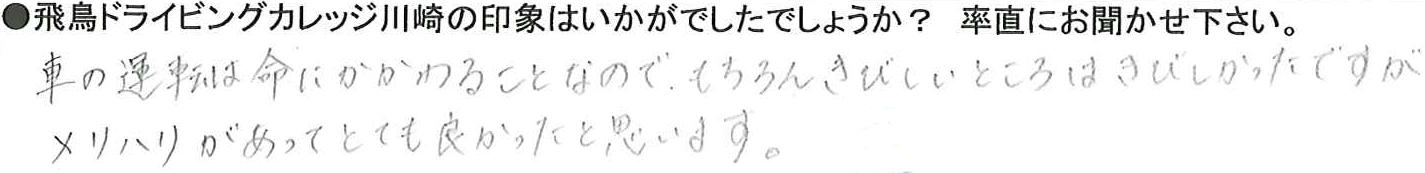 ●飛鳥ドライビングカレッジ川崎の印象はいかがでしたでしょうか？ 率直にお聞かせ下さい。
車の運転は命にかかわることなので、もちろんきびしいところはきびしかったですが
メリハリがあってとても良かったと思います。